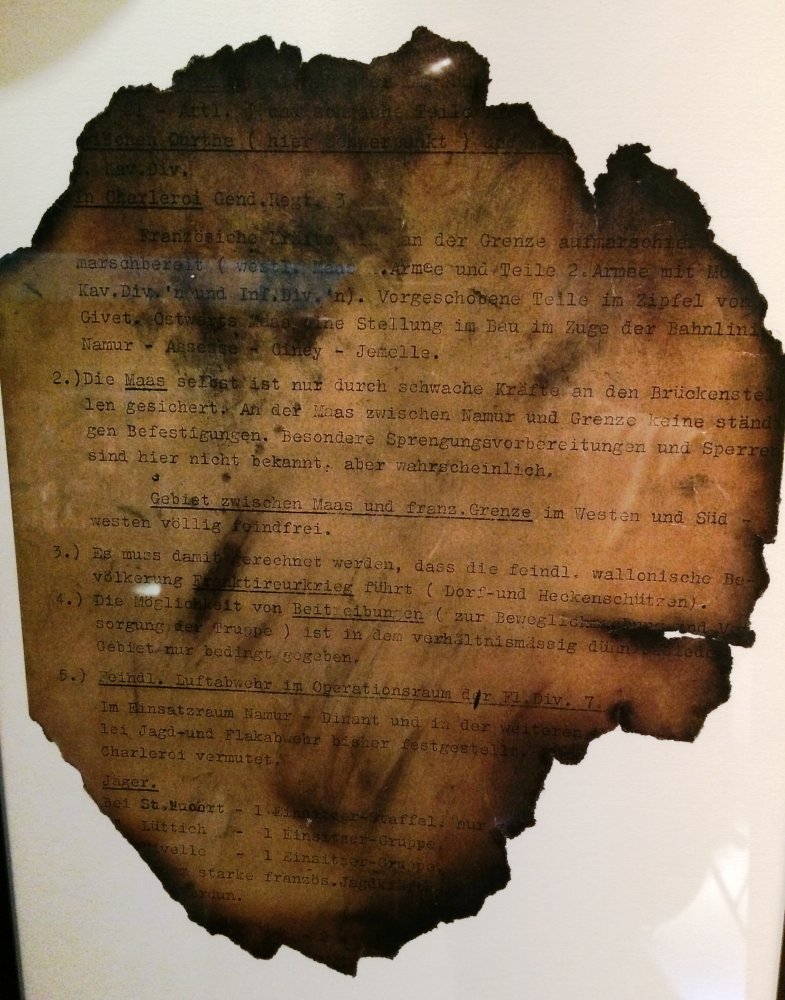 - Artl. J und sonstiche Teile
Ourthe ( hier Schwerpunkt ) und
. Kav.Div.
in Charleroi Gend.Regt. 3
Französiche Kräfte an der Grenze aufmarschier
marschbereit ( westl. Maas .Armee und Teile 2.Armee mit Mo
Kav.Div.'n und Inf.Div.'n). Vorgeschobene Teile im Zipfel von
Givet. Ostwärts Maas eine Stellung im Bau im Zuge der Bahnlini
Namur - Assesse - Ciney - Jemelle.
2.)Die Maas selbst ist nur durch schwache Kräfte an den Brückenstel
len gesichert. An der Maas zwischen Namur und Grenze keine ständi
gen Befestigungen. Besondere Sprengungsvorbereitungen und Sperren
sind hier nicht bekannt, aber wahrscheinlich.
Gebiet zwischen Maas und franz.Grenze im Westen und Süd -
westen völlig feindfrei.
3.) Es muss damit gerechnet werden, dass die feindl. wallonische Be-
völkerung Franktireurkrieg führt ( Dorf-und Heckenschützen).
4.) Die Möglichkeit von Beitreibungen ( zur und Ver
sorgung der Truppe ) ist in dem verhältnismässig dünn
Gebiet nur bedingt gegeben.
5.) Feindl. Luftabwehr im Operationsraum der Fl.Div. 7.
Im Einsatzraum Namur - Dinant und in der weiteren
lei Jagd-und Flakabwehr bisher festgestellt.
Charleroi vermutet.
Jäger.
Bei St.Hubert - 1 Einsitzer-Staffel. nur
Lüttich - 1 Einsitser-Gruppe.
Nivelle - 1 Einsitser-Gruppe.
starke französ.Jagdkräfte
Verdun.